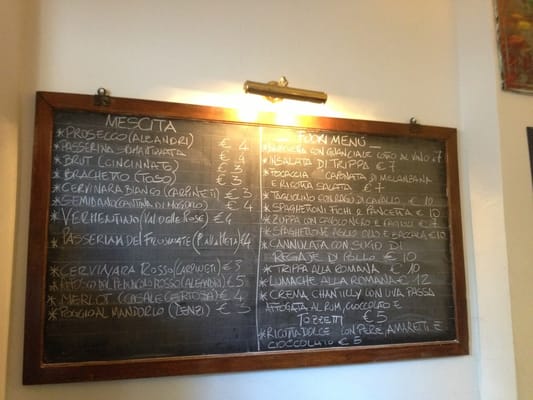 MESCITA
* PROSECCO (ALEANDRI) € 4
* PASSERINA SPUMANTIZZATA € 4
* BRUT (CINCINNATO) € 3
* BRACHETTO (TOSO) € 3
* CERVINARA BIANCO (CARPINETI) € 3
* SEMIDANO (CANTINA DI MOGORO) € 4
* VERMENTINO (VAL DELLE ROSE) € 4
* PASSERINA DEL FRUSINATE € 4
* CERVINARA ROSSO (CARPINETI) € 3
ROSSO € 5
* MERLOT (CASALE CERTOSA) € 4
* POGGIO AL MANDORLO (LENZI) € 3
FUORI MENÚ
CON GUANCIALE COTTO AL VINO € 7
* INSALATA DI TRIPPA € 7
* FOCACCIA CAPONATA DI MELANZANA
E RICOTTA SALATA € 7
* TAGLIOLINO CON RAGÚ DI CAVALLO € 10
* SPAGHETTONI FICHI E PANCETTA € 10
* ZUPPA CON CAVOLO NERO E FAGIOLI € 7
* SPAGHETTONE AGLIO OLIO E BACCALÁ € 10
* CANNULATA CON SUGO DI
REGAJE DI POLLO € 10
* TRIPPA ALLA ROMANA € 10
* LUMACHE ALLA ROMANA € 12
* CREMA CHANTILLY CON UVA PASSA
AFFOGATA AL RUM, CIOCCOLATO E
TOZZETTI € 5
* RICOTTA DOLCE CON PERE, AMARETTI E
CIOCCOLATO € 5